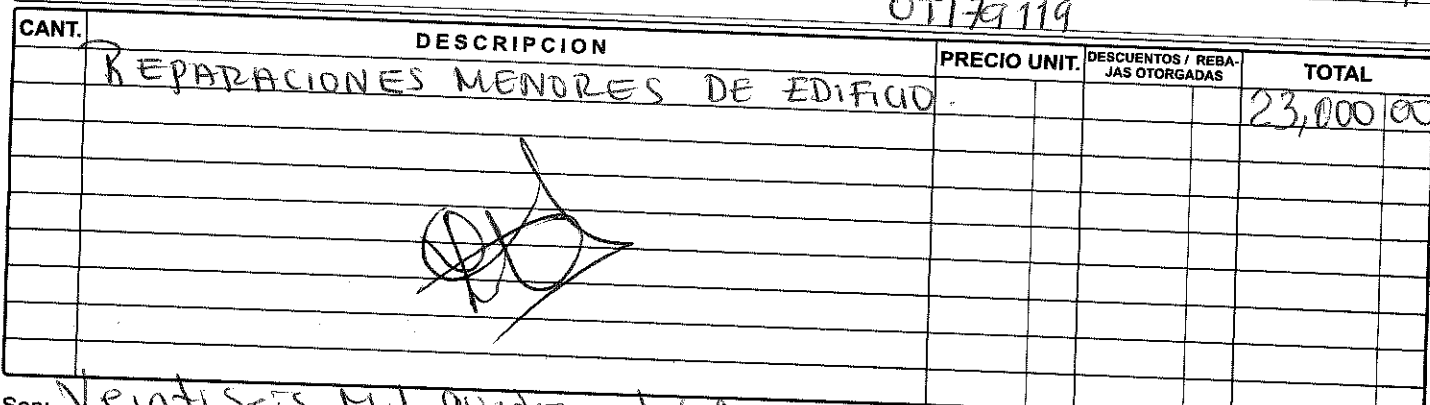 CANT. DESCRIPCION PRECIO UNIT. DESCUENTOS / REBAJAS OTORGADAS TOTAL
REPARACIONES MENORES DE EDIFICIO. 23,000 00
Son: Veintiseis Mil